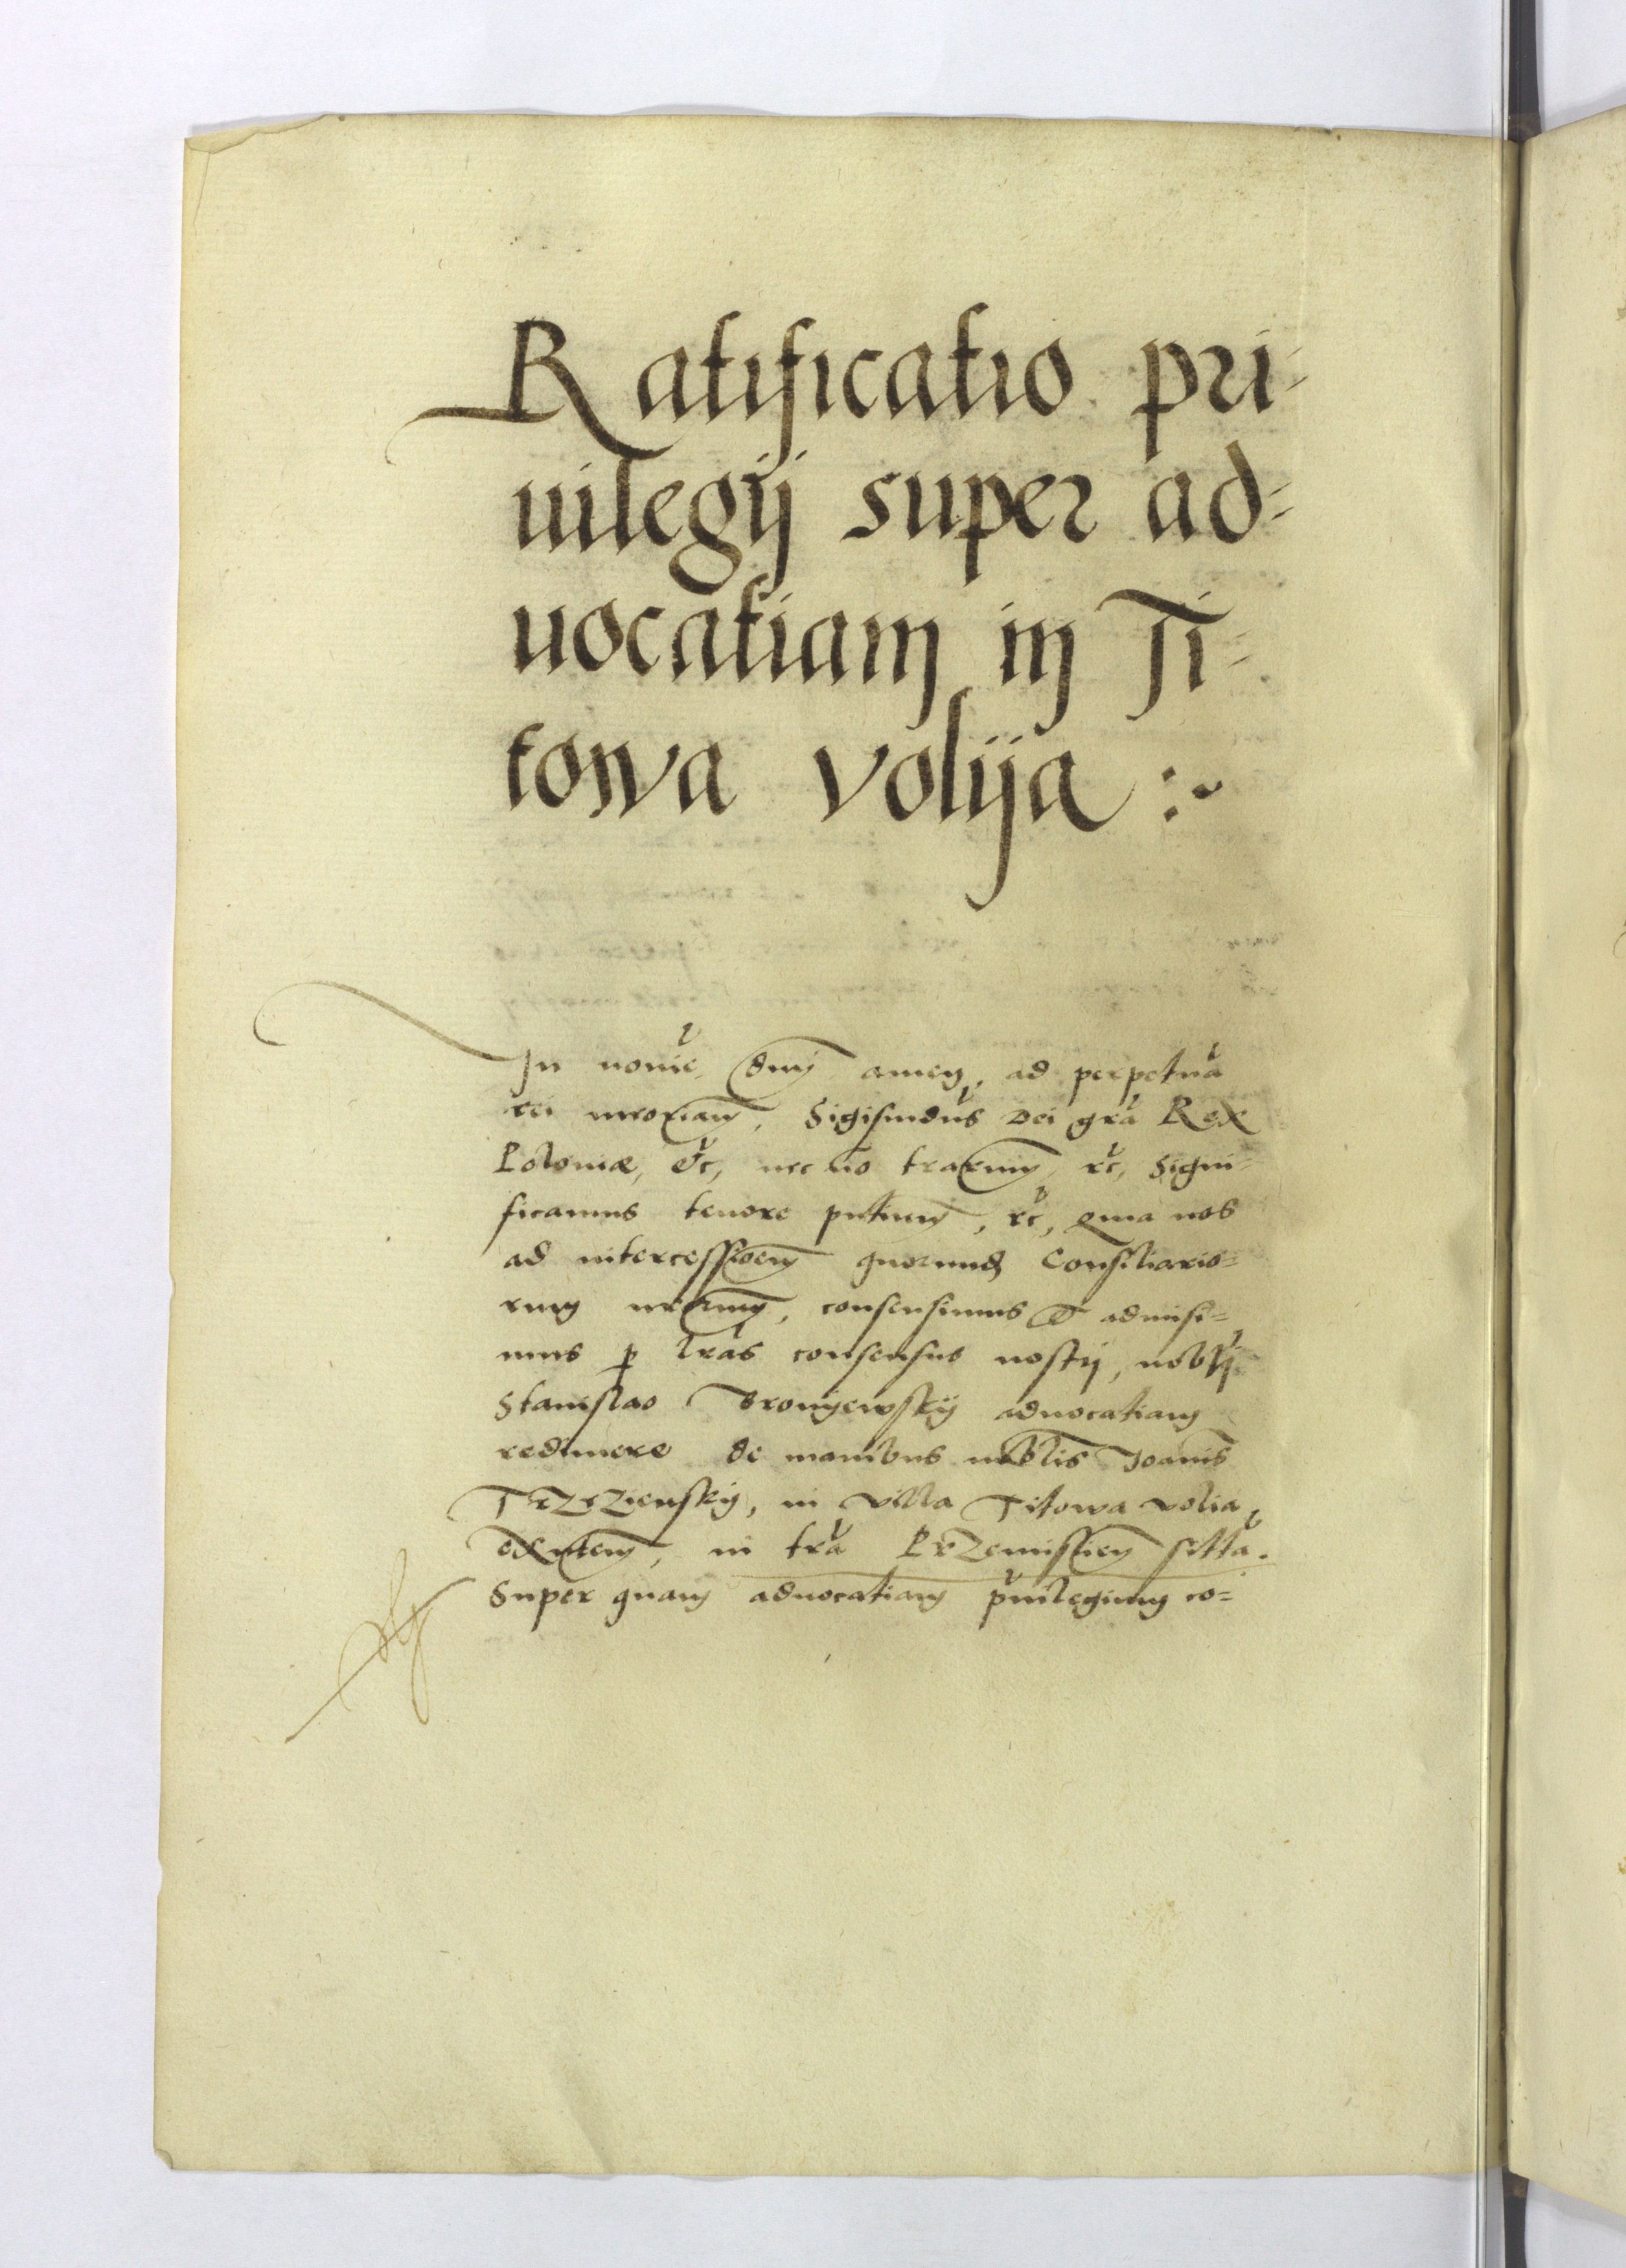 Ratificatio pri-
uilegij super ad-
uocatiam in Ti-
towa volija :~
In noie dnj amen, ad perpetua
rei memoriam, Sigismdus Dei gra Rex
Poloniæ, &c, nec no trarum, &c, Signi-
ficamus tenore pntium, &c, Quia nos
ad intercessioem quorundam Consiliario-
rum nrorum, consensimus & admisi-
mus p lras consensus nostrj, nobilj
Stanislao Bronyewskij aduocatiam
redimere de manibus nobilis Joanis
Trzezienskij, in villa Titowa volia
existem, in tra Przemislien sitta.
Super quam aduocatiam priuilegium co-